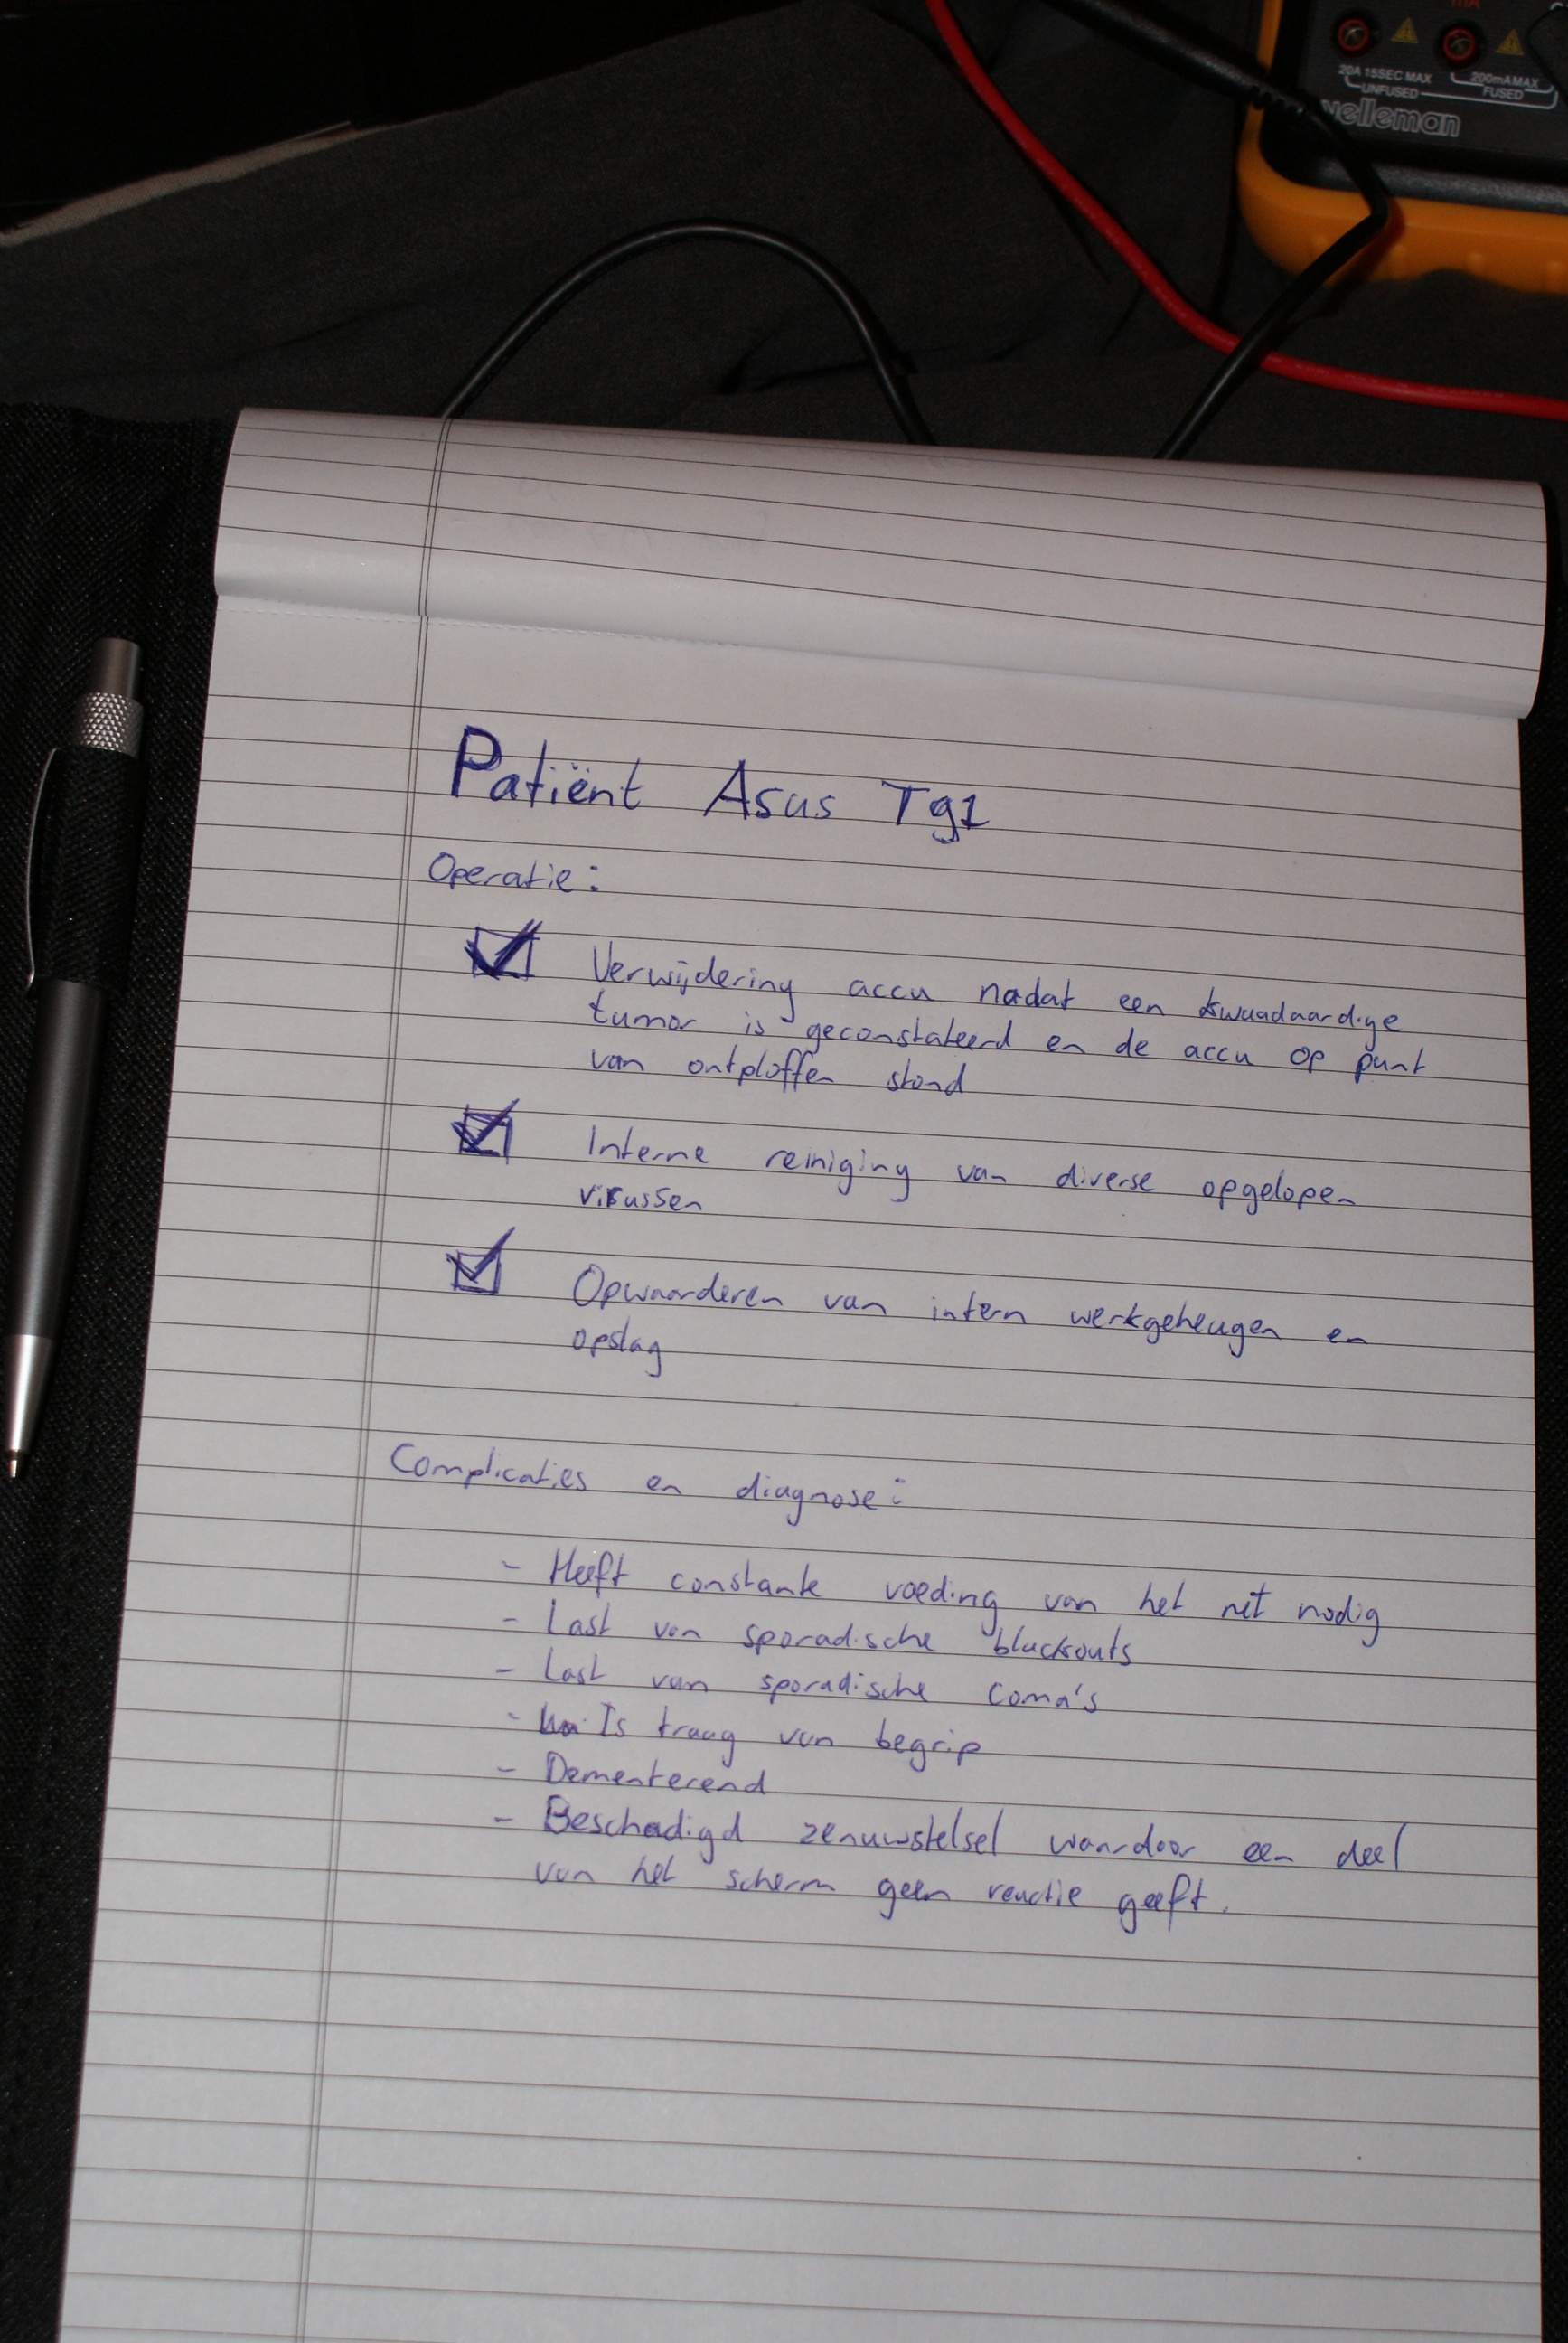 mA
20A 15SEC MAX
UNFUSED
200mA MAX
FUSED
velleman
Patiënt Asus Tg1
Operatie:
Verwijdering accu nadat een kwaadaardige
tumor is geconstateerd en de accu op punt
van ontploffen stond
Interne reiniging van diverse opgelopen
virussen
Opwaarderen van intern werkgeheugen en
opslag
Complicaties en diagnose:
- Heeft constante voeding van het net nodig
- Last van sporadische blackouts
- Last van sporadische coma's
- Is traag van begrip
- Dementerend
- Beschadigd zenuwstelsel waardoor een deel
van het scherm geen reactie geeft.